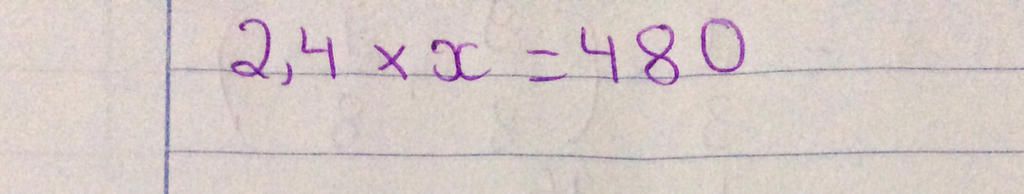 2,4 × x = 480